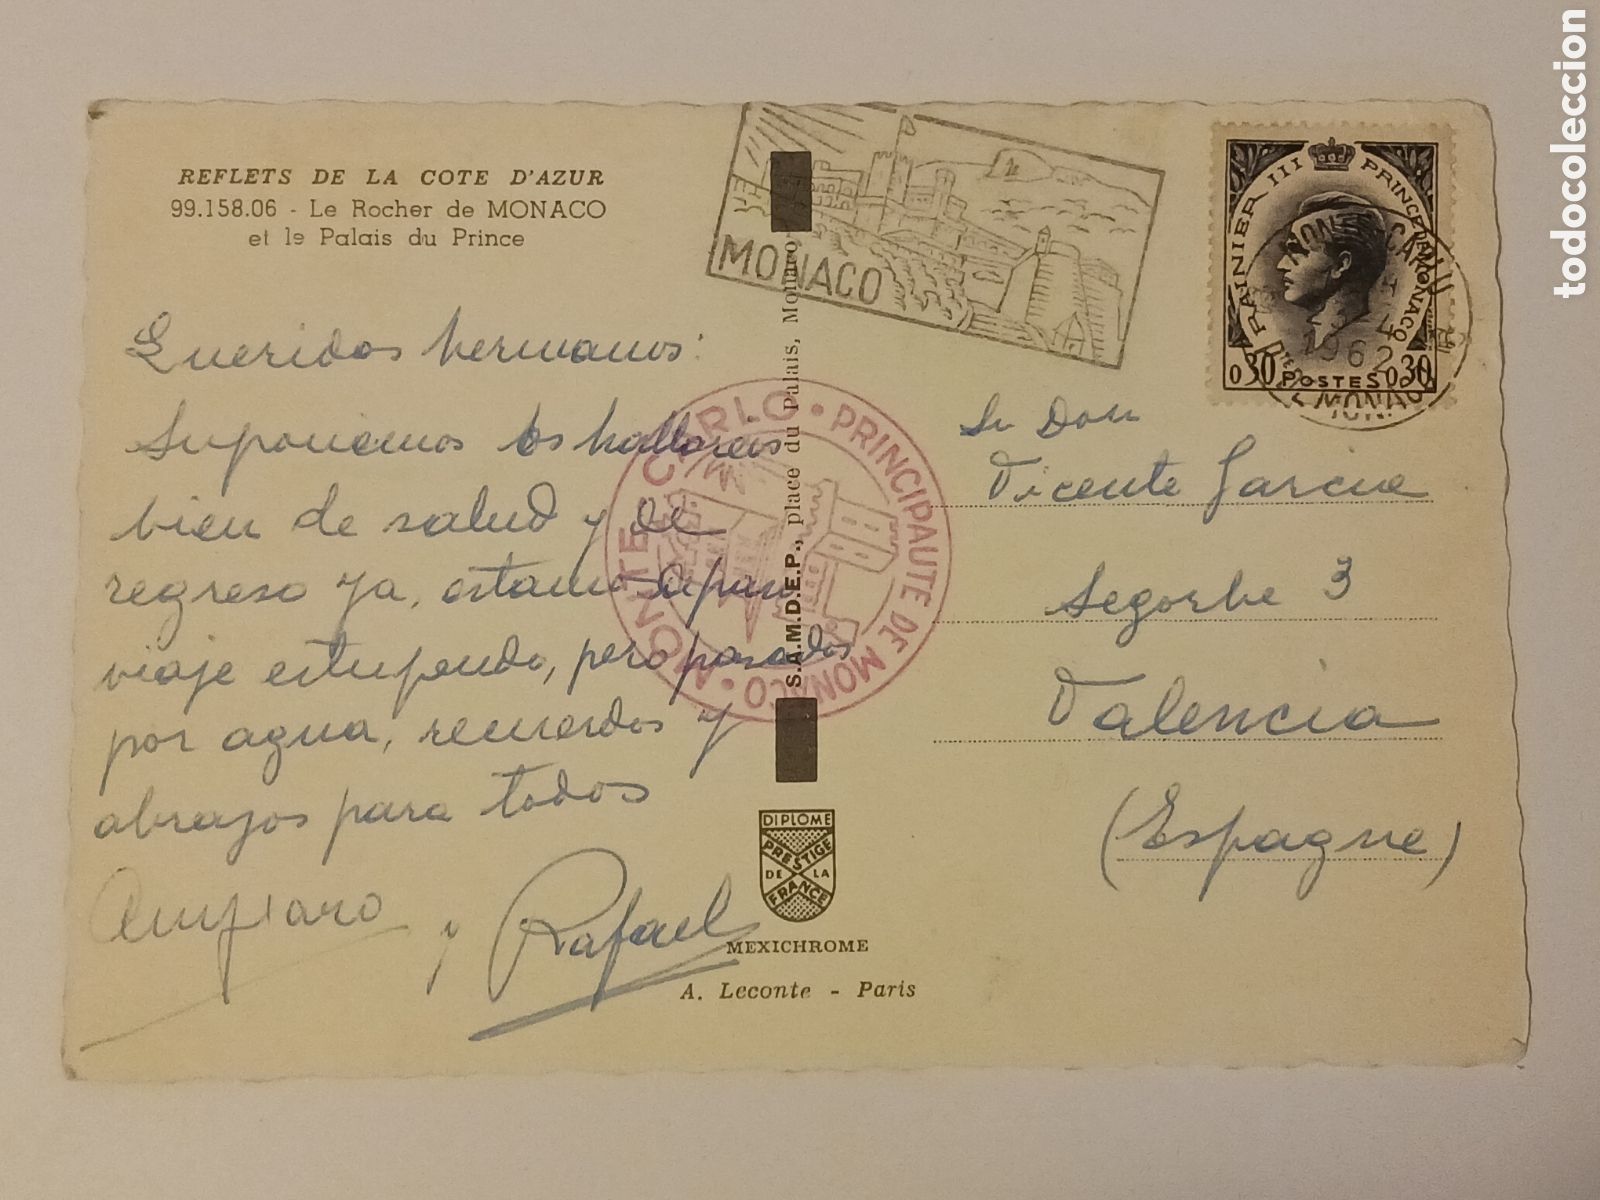 REFLETS DE LA COTE D'AZUR
99.158.06 - Le Rocher de MONACO
et le Palais du Prince
Queridos hermanos:
Suponemos os hallareis
bien de salud y de
regreso ya, estamos
viaje estupendo, pero pasados
por agua, recuerdos y
abrazos para todos
Amparo y Rafael
MONACO
MONTE CARLO • PRINCIPAUTE DE MONACO •
S.A.M.D.E.P., place du Palais, Monaco
DIPLOME
PRESTIGE
DE LA
FRANCE
MEXICHROME
A. Leconte - Paris
RAINIER III PRINCE DE MONACO
1962
0,30 POSTES 0,30
Sr Don
Vicente Garcia
Segorbe 3
Valencia
(Espagne)
todocoleccion